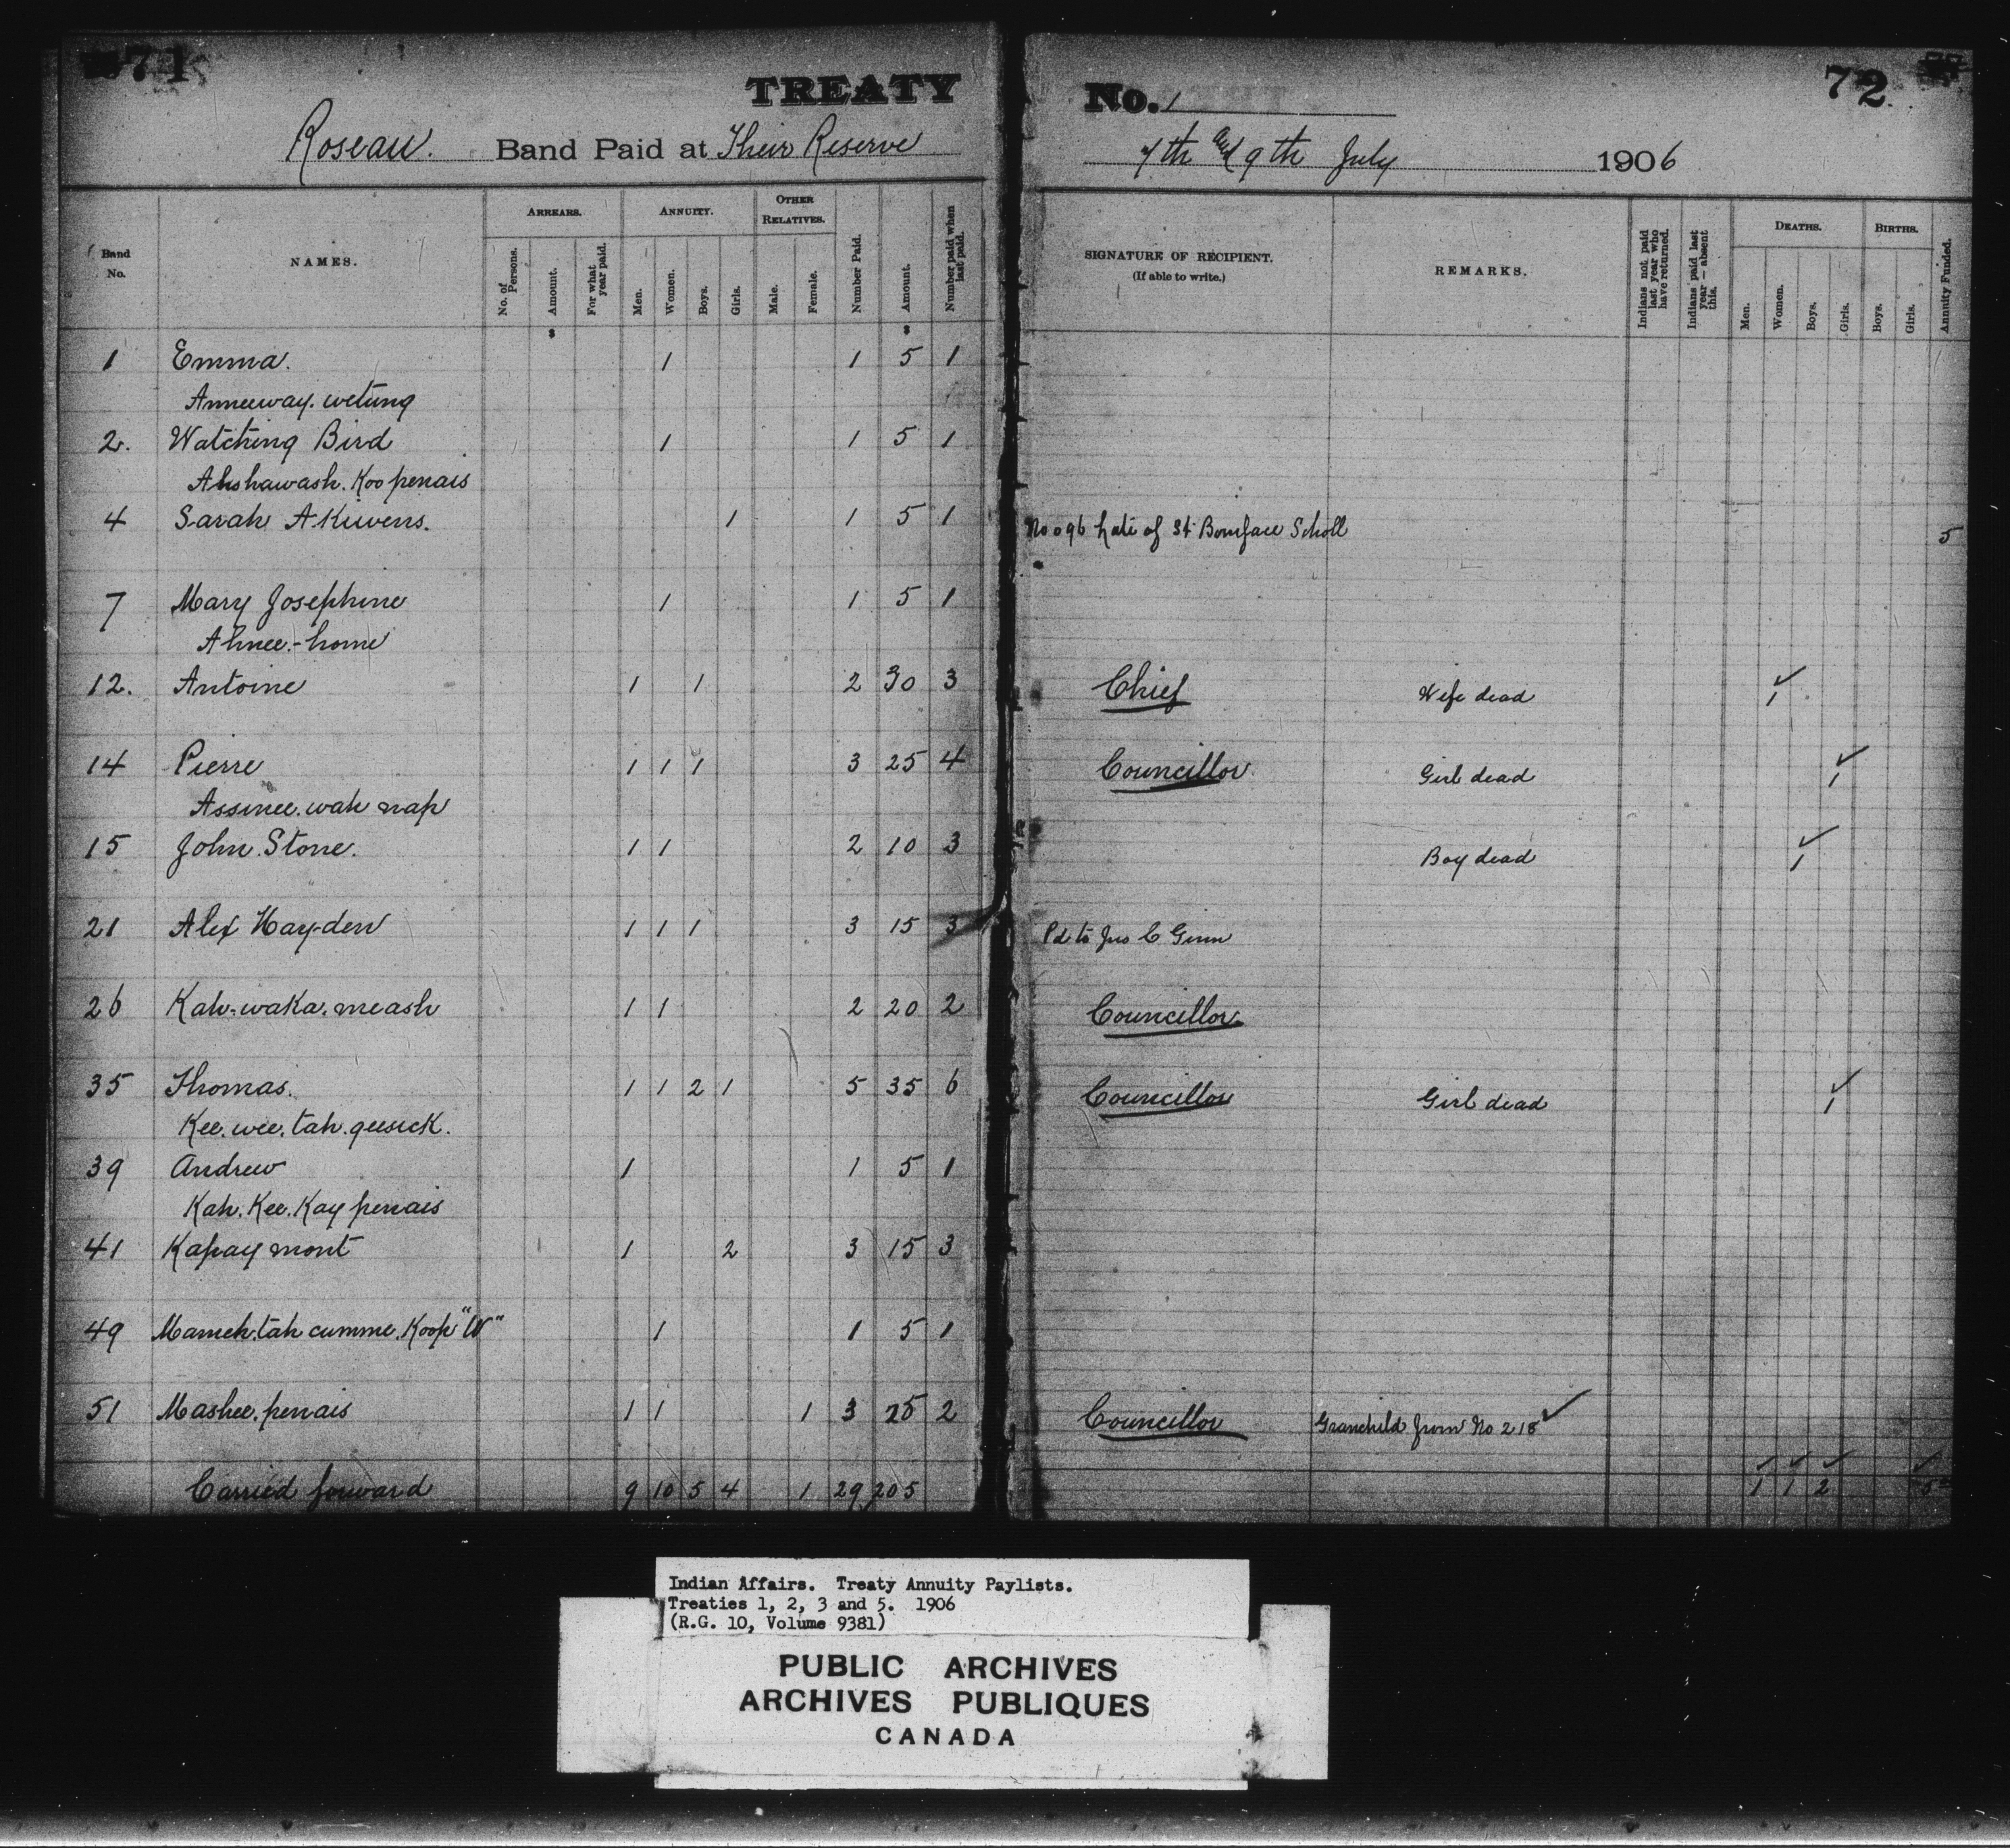 71
TREATY
Roseau. Band Paid at Their Reserve
Band No.
NAMES.
ARREARS.
No. of Persons.
Amount.
For what year paid.
ANNUITY.
Men.
Women.
Boys.
Girls.
OTHER RELATIVES.
Male.
Female.
Number Paid.
Amount.
Number paid when last paid.
$ $
1 Emma. 1 1 5 1
Anneeway. wetung
2. Watching Bird 1 1 5 1
Ahshawash. Koo penais
4 Sarah Akiwens. 1 1 5 1
7 Mary Josephine 1 1 5 1
Ahnee-home
12. Antoine 1 1 2 30 3
14 Pierre 1 1 1 3 25 4
Assinee. wah nap
15 John Stone. 1 1 2 10 3
21 Alex Hayden 1 1 1 3 15 3
26 Kah-waka. meash 1 1 2 20 2
35 Thomas. 1 1 2 1 5 35 6
Kee. wee. tah. geesick.
39 Andrew 1 1 5 1
Kah. Kee. Kay penais
41 Kapay mont 1 2 3 15 3
49 Mameh. tah cumme. Koop "W" 1 1 5 1
51 Mashee. penais 1 1 1 3 25 2
Carried forward 9 10 5 4 1 29 205
72
No. 1
7th and 9th July 1906
SIGNATURE OF RECIPIENT.
(If able to write.)
REMARKS.
Indians not paid last year who have returned.
Indians paid last year — absent this.
DEATHS.
Men.
Women.
Boys.
Girls.
BIRTHS.
Boys.
Girls.
Annuity Funded.
No 096 late of St Boniface Scholl 5
Chief Wife dead 1
Councillor Girl dead 1
Boy dead 1
Pd to Jno C Ginn
Councillor
Councillor Girl dead 1
Councillor Granchild from No 218
1 1 2 5
Indian Affairs. Treaty Annuity Paylists.
Treaties 1, 2, 3 and 5. 1906
(R.G. 10, Volume 9381)
PUBLIC ARCHIVES
ARCHIVES PUBLIQUES
CANADA